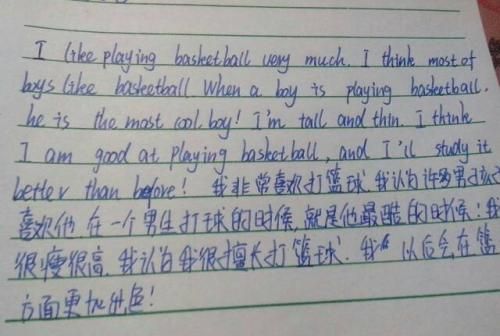 I like playing basketball very much. I think most of
boys like basketball When a boy is playing basketball.
he is the most cool boy! I'm tall and thin. I think
I am good at playing basketball, and I'll study it
better than before! 我非常喜欢打篮球.我认为许多男孩
喜欢他.在一个男生打球的时候,就是他最酷的时候!我
很瘦很高.我认为我很擅长打篮球.我 以后会在篮
方面更加出色!